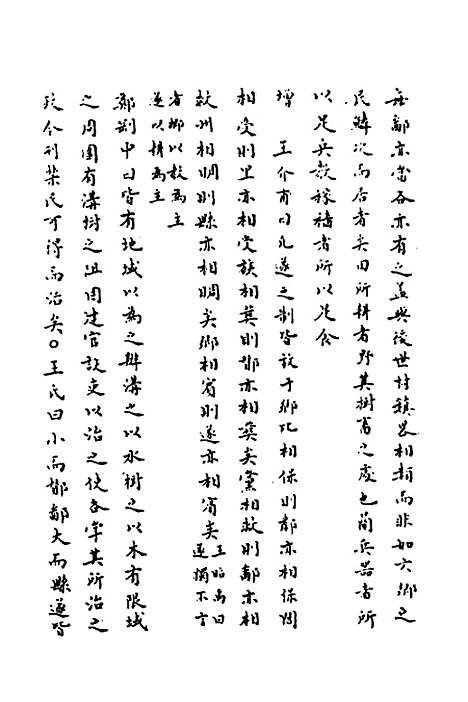 無鄰亦當各亦有之蓋與後世村鎮畧相類而非如六鄉之
民鱗次而居者矣田所耕者野其樹畜之處也簡兵器者所
以足兵教稼穡者所以足食
增　王介甫曰凡遂之制皆放于鄉比相保則鄰亦相保閭
相受則里亦相受族相葬則酇亦相葬矣黨相救則鄙亦相
救州相賙則縣亦相賙矣鄉相賓則遂亦相賓矣
王昭禹曰
遂獨不言
者鄉以教為主
遂以耕為主
鄭剛中曰皆有地域以為之辨溝之以水樹之以木有限域
之周圍有溝樹之阻固建官設吏以治之使各率其所治之
政令刑禁民可得而治矣○王氏曰小而酇鄰大而縣遂皆